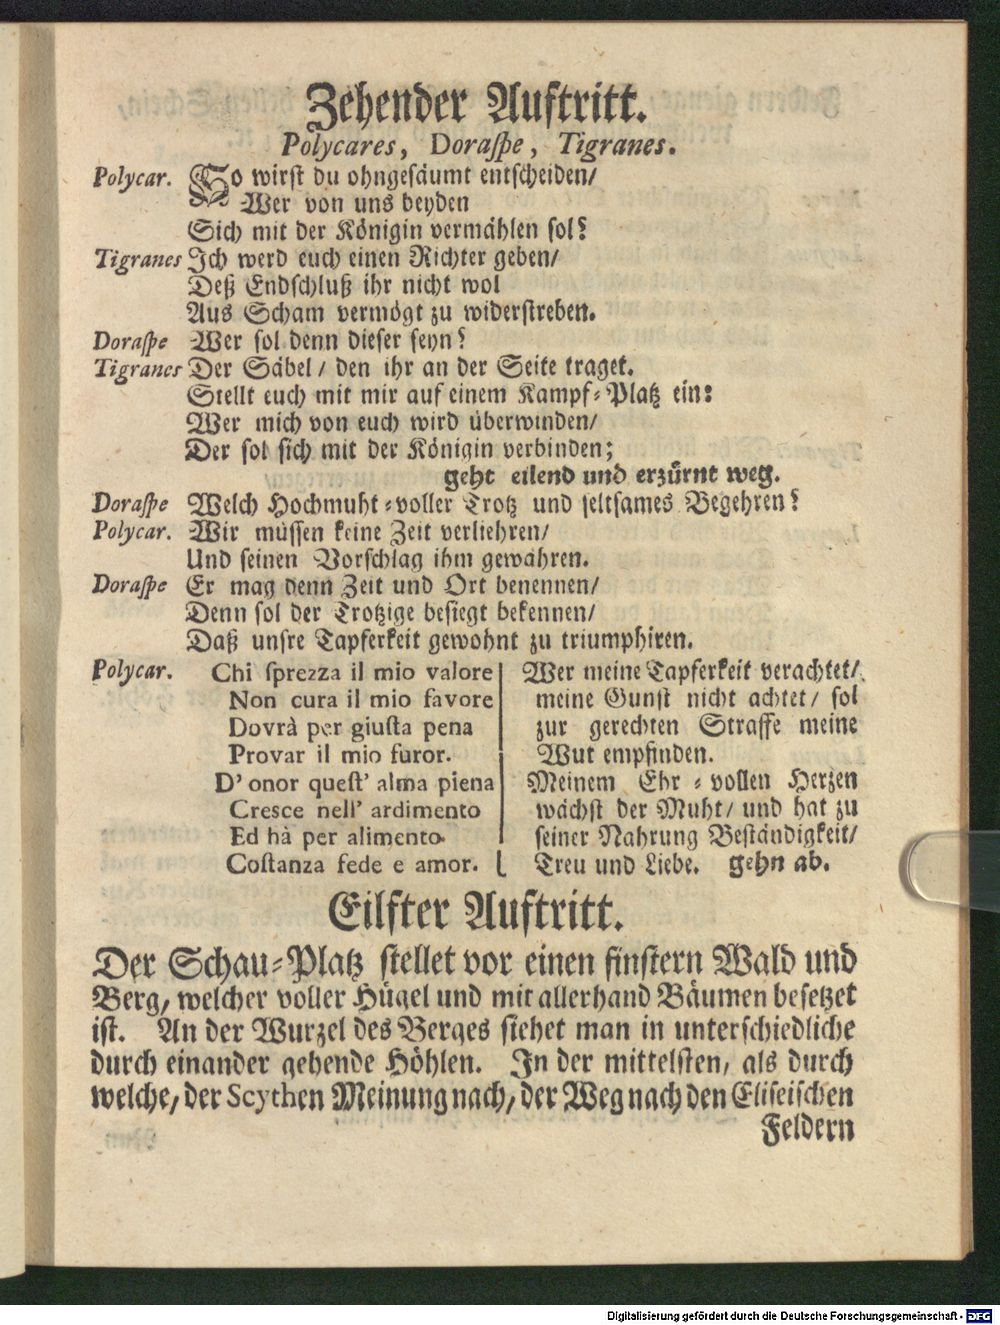 Zehender Auftritt.
Polycares, Doraspe, Tigranes.
Polycar. So wirst du ohngesäumt entscheiden/
Wer von uns beyden
Sich mit der Königin vermählen sol?
Tigranes Ich werd euch einen Richter geben/
Deß Endschluß ihr nicht wol
Aus Scham vermögt zu widerstreben.
Doraspe Wer sol denn dieser seyn?
Tigranes Der Säbel/ den ihr an der Seite traget.
Stellt euch mit mir auf einem Kampf-Platz ein:
Wer mich von euch wird überwinden/
Der sol sich mit der Königin verbinden;
geht eilend und erzürnt weg.
Doraspe Welch Hochmuht-voller Trotz und seltsames Begehren?
Polycar. Wir müssen keine Zeit verliehren/
Und seinen Vorschlag ihm gewähren.
Doraspe Er mag denn Zeit und Ort benennen/
Denn sol der Trotzige besiegt bekennen/
Daß unsre Tapferkeit gewohnt zu triumphiren.
Polycar. Chi sprezza il mio valore
Non cura il mio favore
Dovrà per giusta pena
Provar il mio furor.
D' onor quest' alma piena
Cresce nell' ardimento
Ed hà per alimento
Costanza fede e amor.
Wer meine Tapferkeit verachtet/
meine Gunst nicht achtet/ sol
zur gerechten Straffe meine
Wut empfinden.
Meinem Ehr-vollen Herzen
wächst der Muht/ und hat zu
seiner Nahrung Beständigkeit/
Treu und Liebe. gehn ab.
Eilfter Auftritt.
Der Schau-Platz stellet vor einen finstern Wald und
Berg, welcher voller Hügel und mit allerhand Bäumen besetzet
ist. An der Wurzel des Berges siehet man in unterschiedliche
durch einander gehende Höhlen. In der mittelsten, als durch
welche, der Scythen Meinung nach, der Weg nach den Eliseischen
Feldern
Digitalisierung gefördert durch die Deutsche Forschungsgemeinschaft - DFG